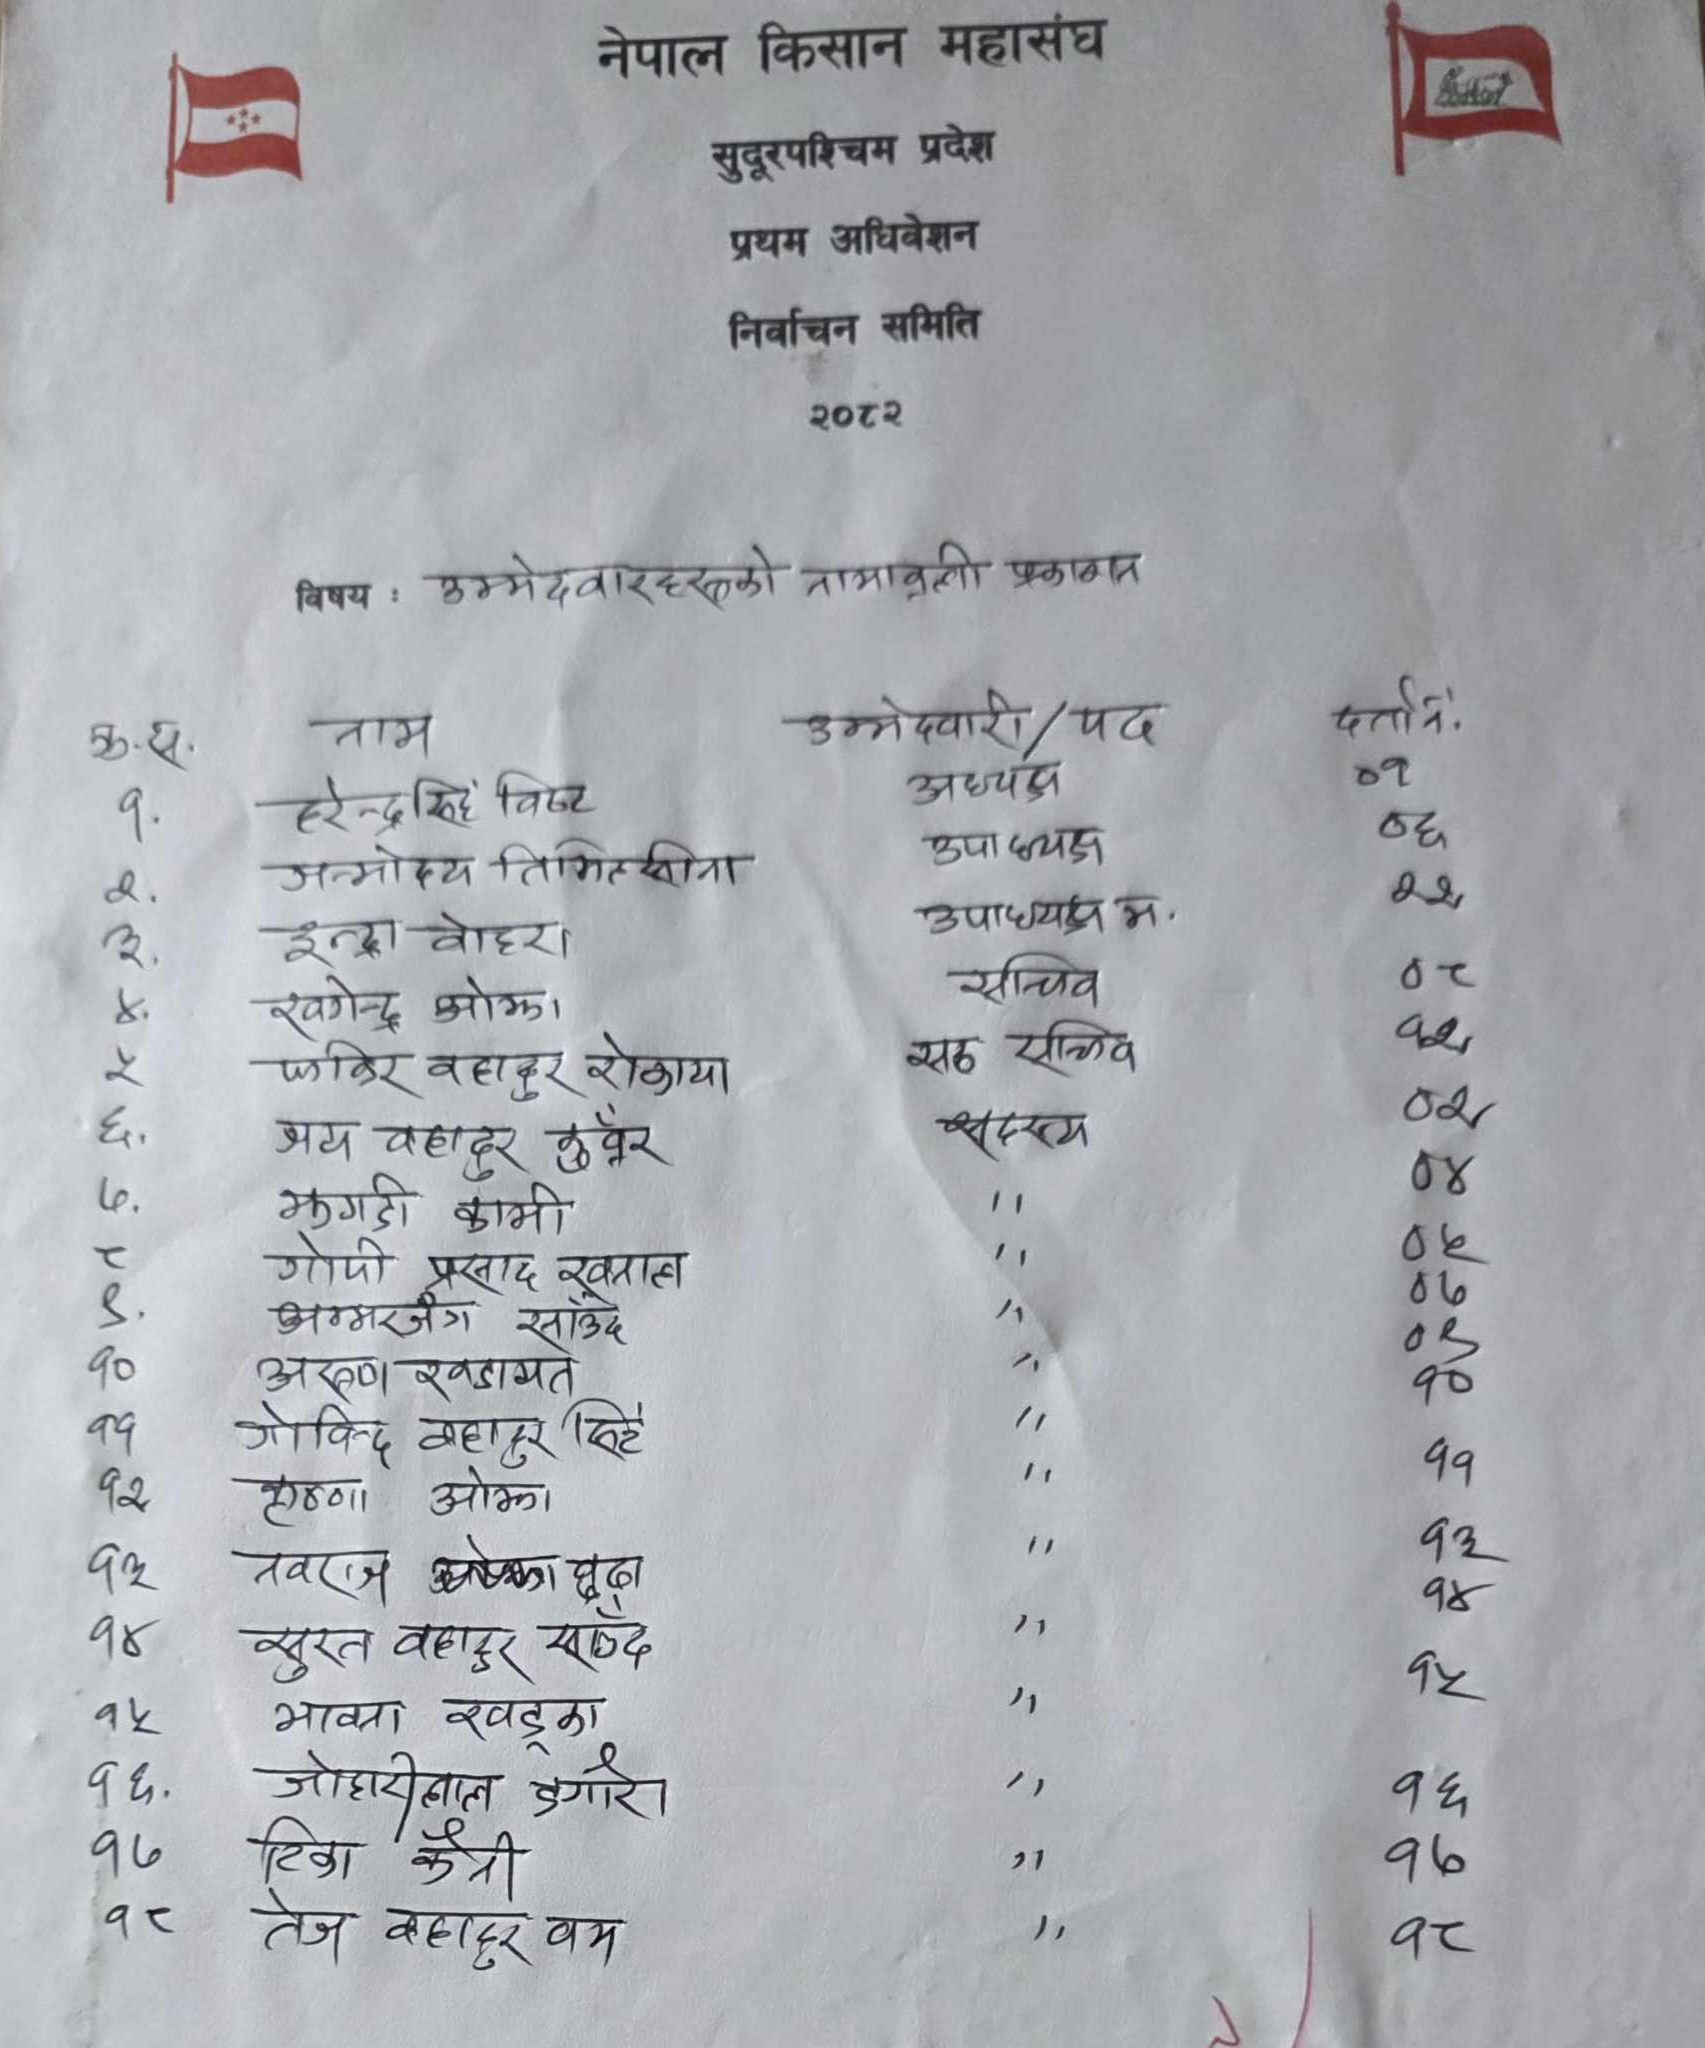 नेपाल किसान महासंघ
सुदूरपश्चिम प्रदेश
प्रथम अधिवेशन
निर्वाचन समिति
२०८२
विषय : उम्मेदवारहरुको नामावली प्रकाशन
क्र.स. नाम उम्मेदवारी/पद दर्ता नं.
१. हरेन्द्र सिहं विष्ट अध्यक्ष ०१
२. जन्मोदय तिमिल्सीना उपाध्यक्ष ०६
३. इन्द्रा वोहरा उपाध्यक्ष म. २२
४. खगेन्द्र ओझा सचिव ०८
५ फकिर वहादुर रोकाया सह सचिव १२
६. जय वहादुर कुवँर सदस्य ०२
७. झगडी कामी " ०४
८ गोपी प्रसाद खनाल " ०५
९. अम्मरजंग साउँद " ०७
१० अरुण खडायत " ०९
११ गोविन्द वहादुर सिहं " १०
१२ कृष्णा ओझा " ११
१३ नवराज बुढा " १३
१४ सुरत वहादुर साउँद " १४
१५ भावना खड्का " १५
१६. जोहारीलाल डगौरा " १६
१७ टिका क्षेत्री " १७
१८ तेज वहादुर वम " १८